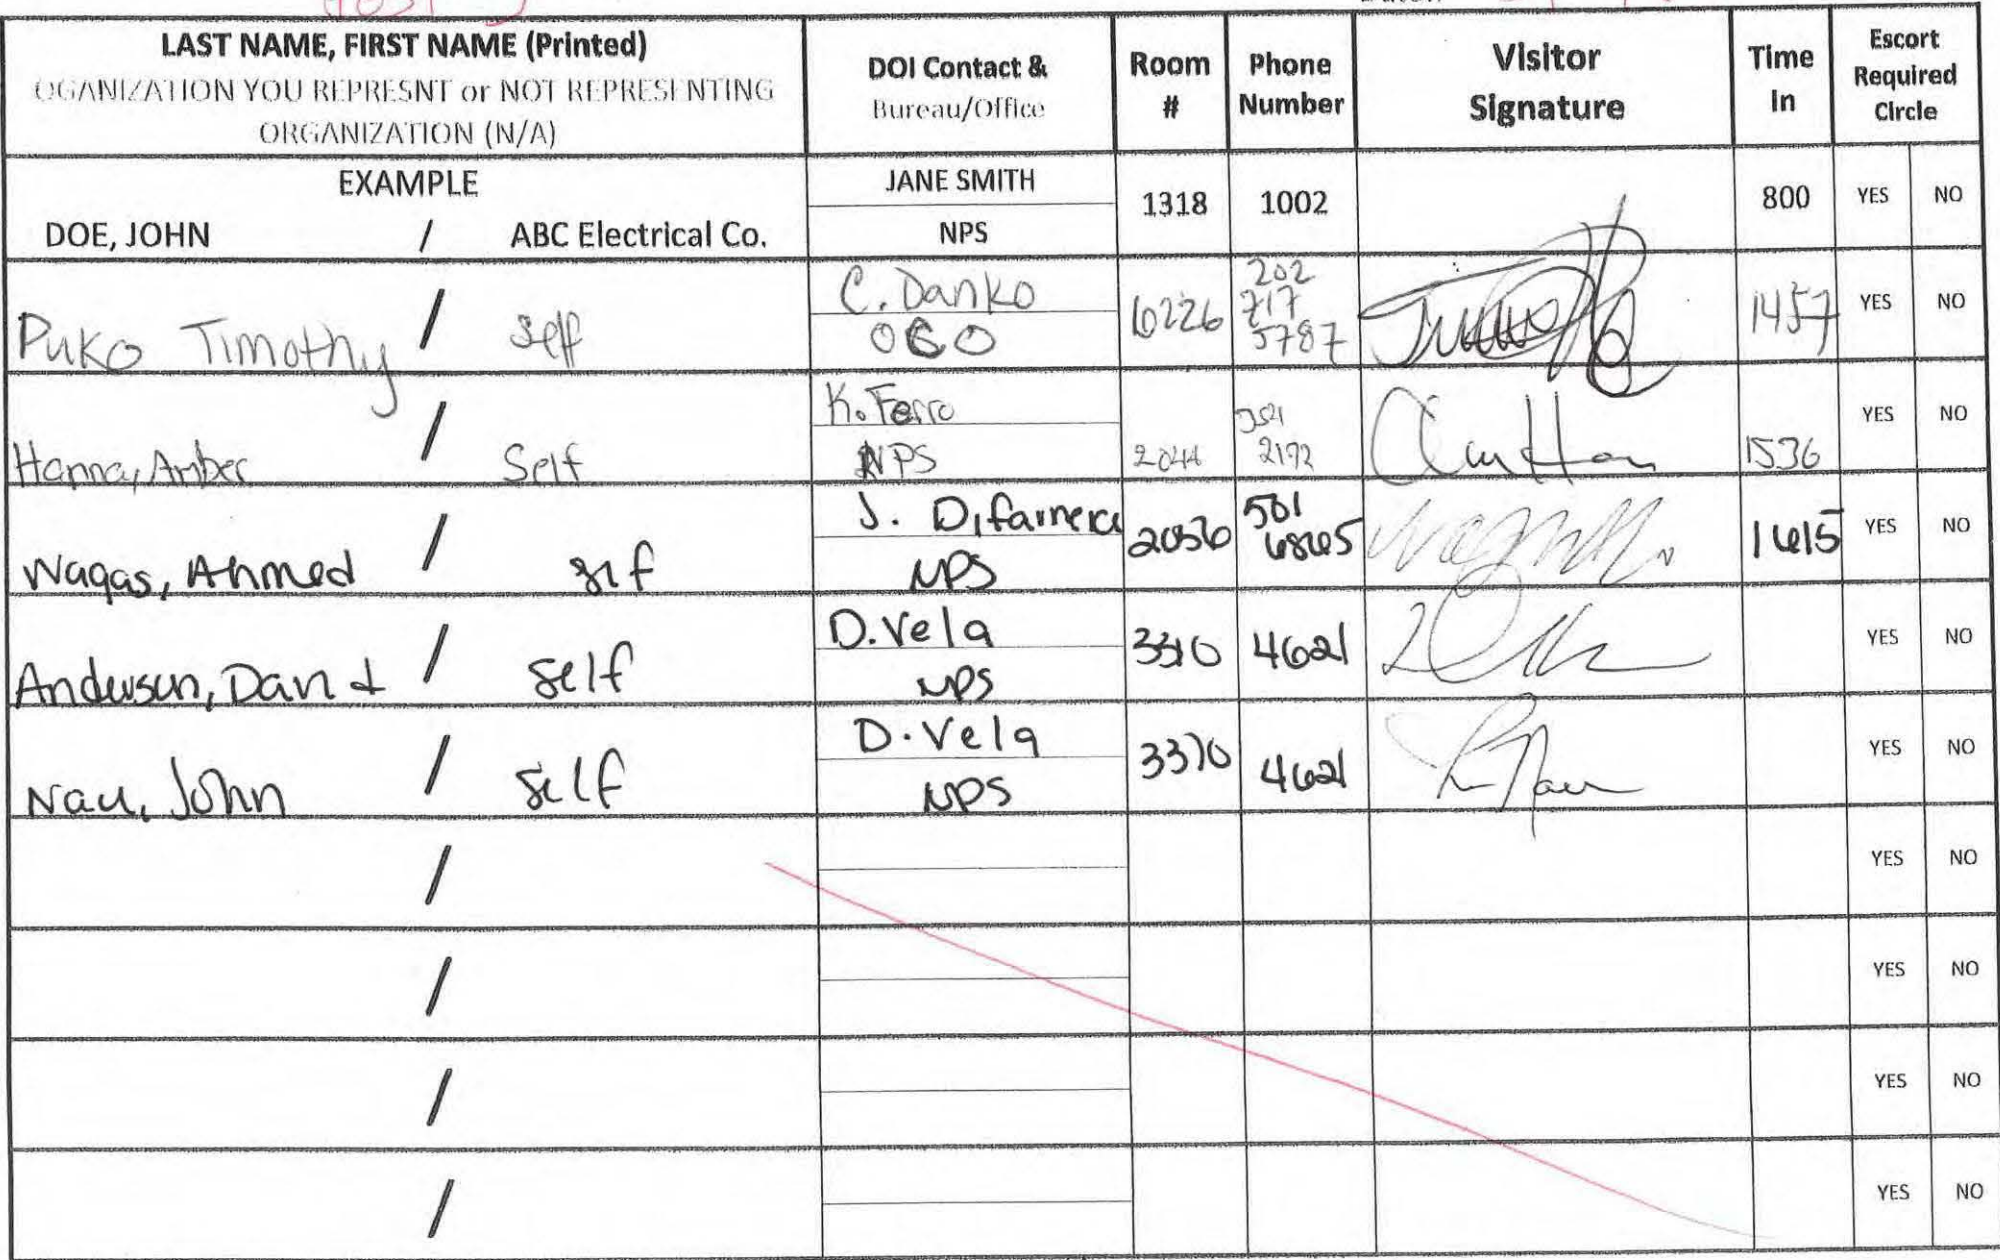 LAST NAME, FIRST NAME (Printed)
OGANIZATION YOU REPRESNT or NOT REPRESENTING
ORGANIZATION (N/A)
DOI Contact &
Bureau/Office
Room
#
Phone
Number
Visitor
Signature
Time
In
Escort
Required
Circle
EXAMPLE
DOE, JOHN / ABC Electrical Co.
JANE SMITH
NPS
1318
1002
800
YES NO
Puko Timothy / Self
C. Danko
OCO
6226
202
717
5787
1457
YES NO
Hanna, Amber / Self
K. Ferro
NPS
2044
354
2172
1536
YES NO
Wagas, Ahmed / self
J. Difarnera
NPS
2036
501
6865
1615
YES NO
Anderson, David / Self
D. Vela
NPS
3310
4621
YES NO
Nau, John / Self
D. Vela
NPS
3310
4621
YES NO
/
YES NO
/
YES NO
/
YES NO
/
YES NO